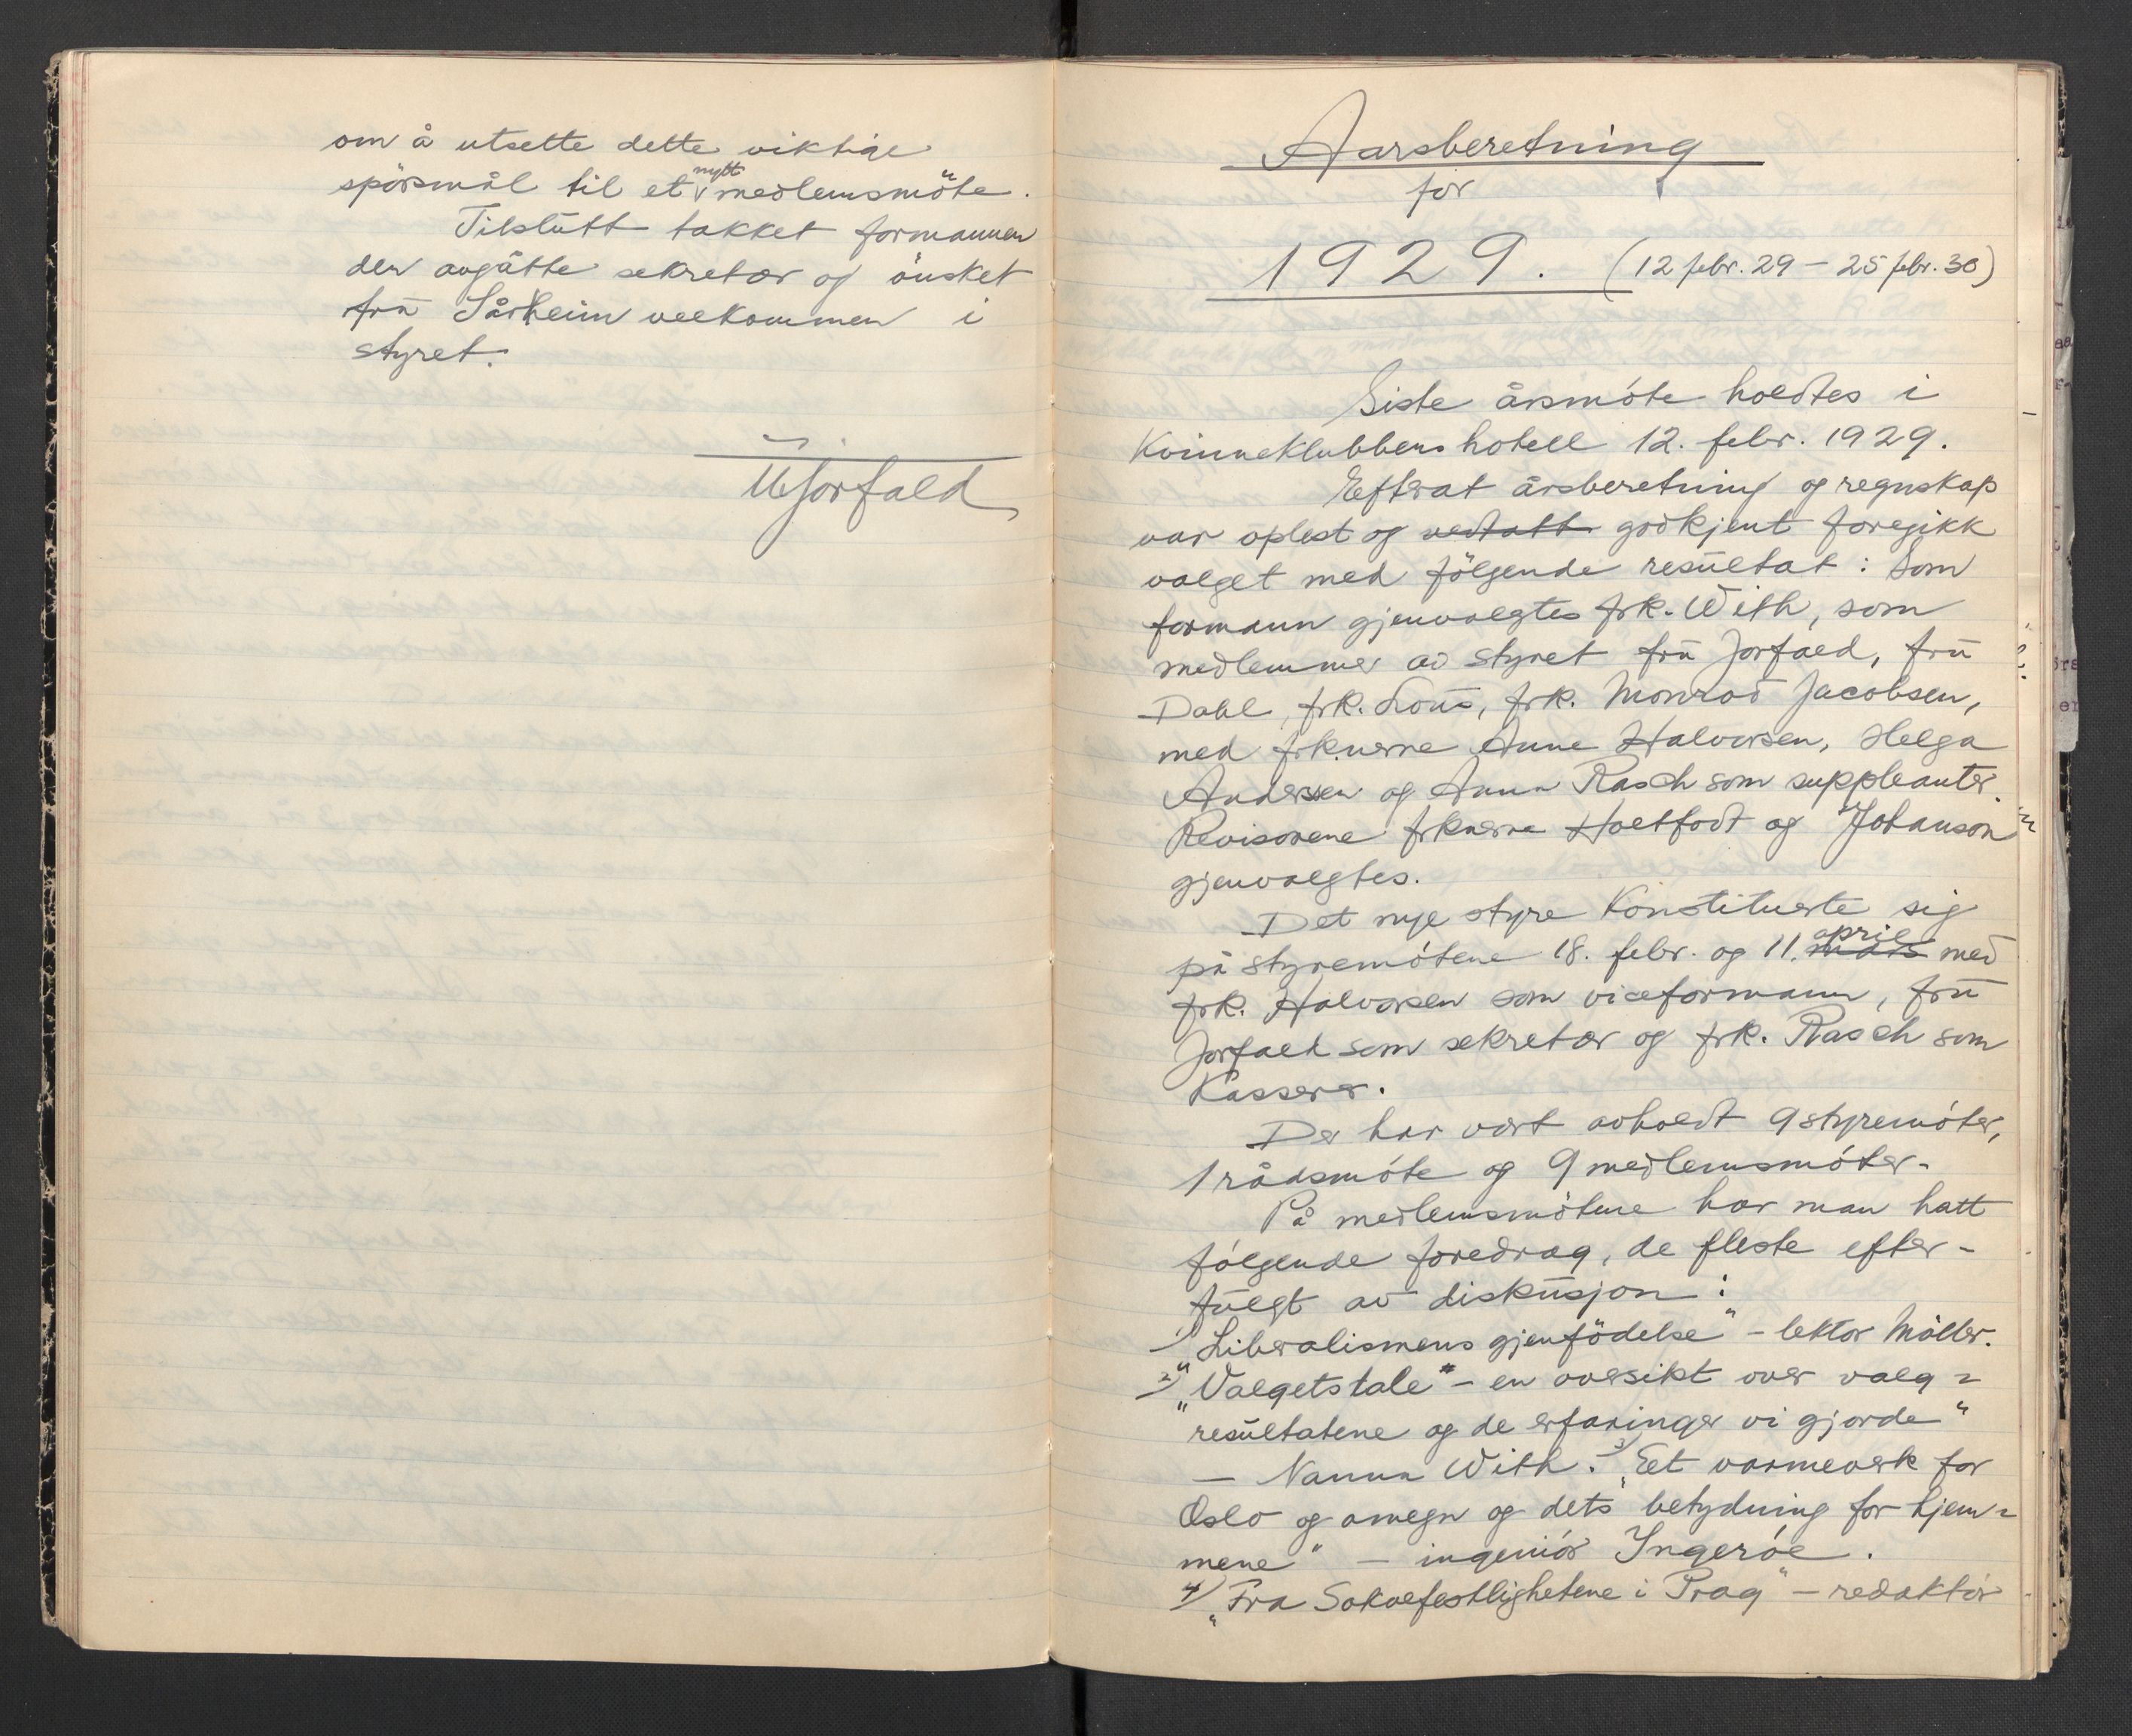 om å utsette dette viktige
spörsmål til et nytt medlemsmöte.
Tilslutt takket formannen
den avgåtte sekretær og önsket
fru Sårheim velkommen i
styret.
Aarsberetning
for
1929. (12 febr. 29 – 25 febr. 30)
Siste årsmöte holdtes i
Kvinneklubbens hotell 12. febr. 1929.
Efterat årsberetning og regnskap
var oplest og vedtatt godkjent foregikk
valget med fölgende resultat: Som
formann gjenvalgtes frk. With, som
medlemmer av styret fru Jorfald, fru
Dahl, frk. Lous, frk. Monrad Jacobsen,
med frknerne Anne Halvorsen, Helga
Andersen og Anna Rasch som suppleanter.
Revisorene frknerne Holtfodt og Johanson
gjenvalgtes.
Det nye styre konstituerte sig
på styremötene 18. febr. og 11. mars april med
frk. Halvorsen som viceformann, fru
Jorfald som sekretær og frk. Rasch som
Kasserer.
Der har vært avholdt 9 styremöter,
1 rådsmöte og 9 medlemsmöter.
På medlemsmötene har man hatt
fölgende foredrag, de fleste efter-
fulgt av diskusjon:
1) „Liberalismens gjenfödelse" – lektor Möller.
2) „Valgets tale" – en oversikt over valg=
resultatene og de erfaringer vi gjorde"
– Nanna With. 3) „Et varmeverk for
Oslo og omegn og dets betydning for hjem=
mene" – ingeniör Ingeröe.
4) „Fra Sokolfestlighetene i Prag" – redaktör